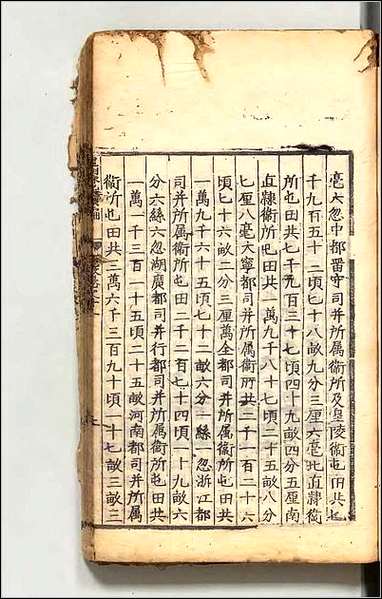 毫六忽中都留守司并所属衞所及皇陵衞屯田共七
千九百五十二頃七十八畝九分三厘六毫北直隷衞
所屯田共七千九百三十七頃四十九畝四分五厘南
直隷衞所屯田共一萬九千八十七頃二十五畝八分
七厘八毫大寧都司并所属衞所共二千一百二十六
頃七十六畝二分三厘萬全都司并所属衞所屯田共
一萬九千六十五頃七十二畝六分一絲一忽浙江都
司并所属衞所屯田共二千二百七十四頃一十九畝
分六絲六忽湖廣都司并行都司并所属衞所屯田共
一萬一千三百一十五頃二十五畝河南都司并所属
衞所屯田共三萬六千三百九十頃一十七畝三